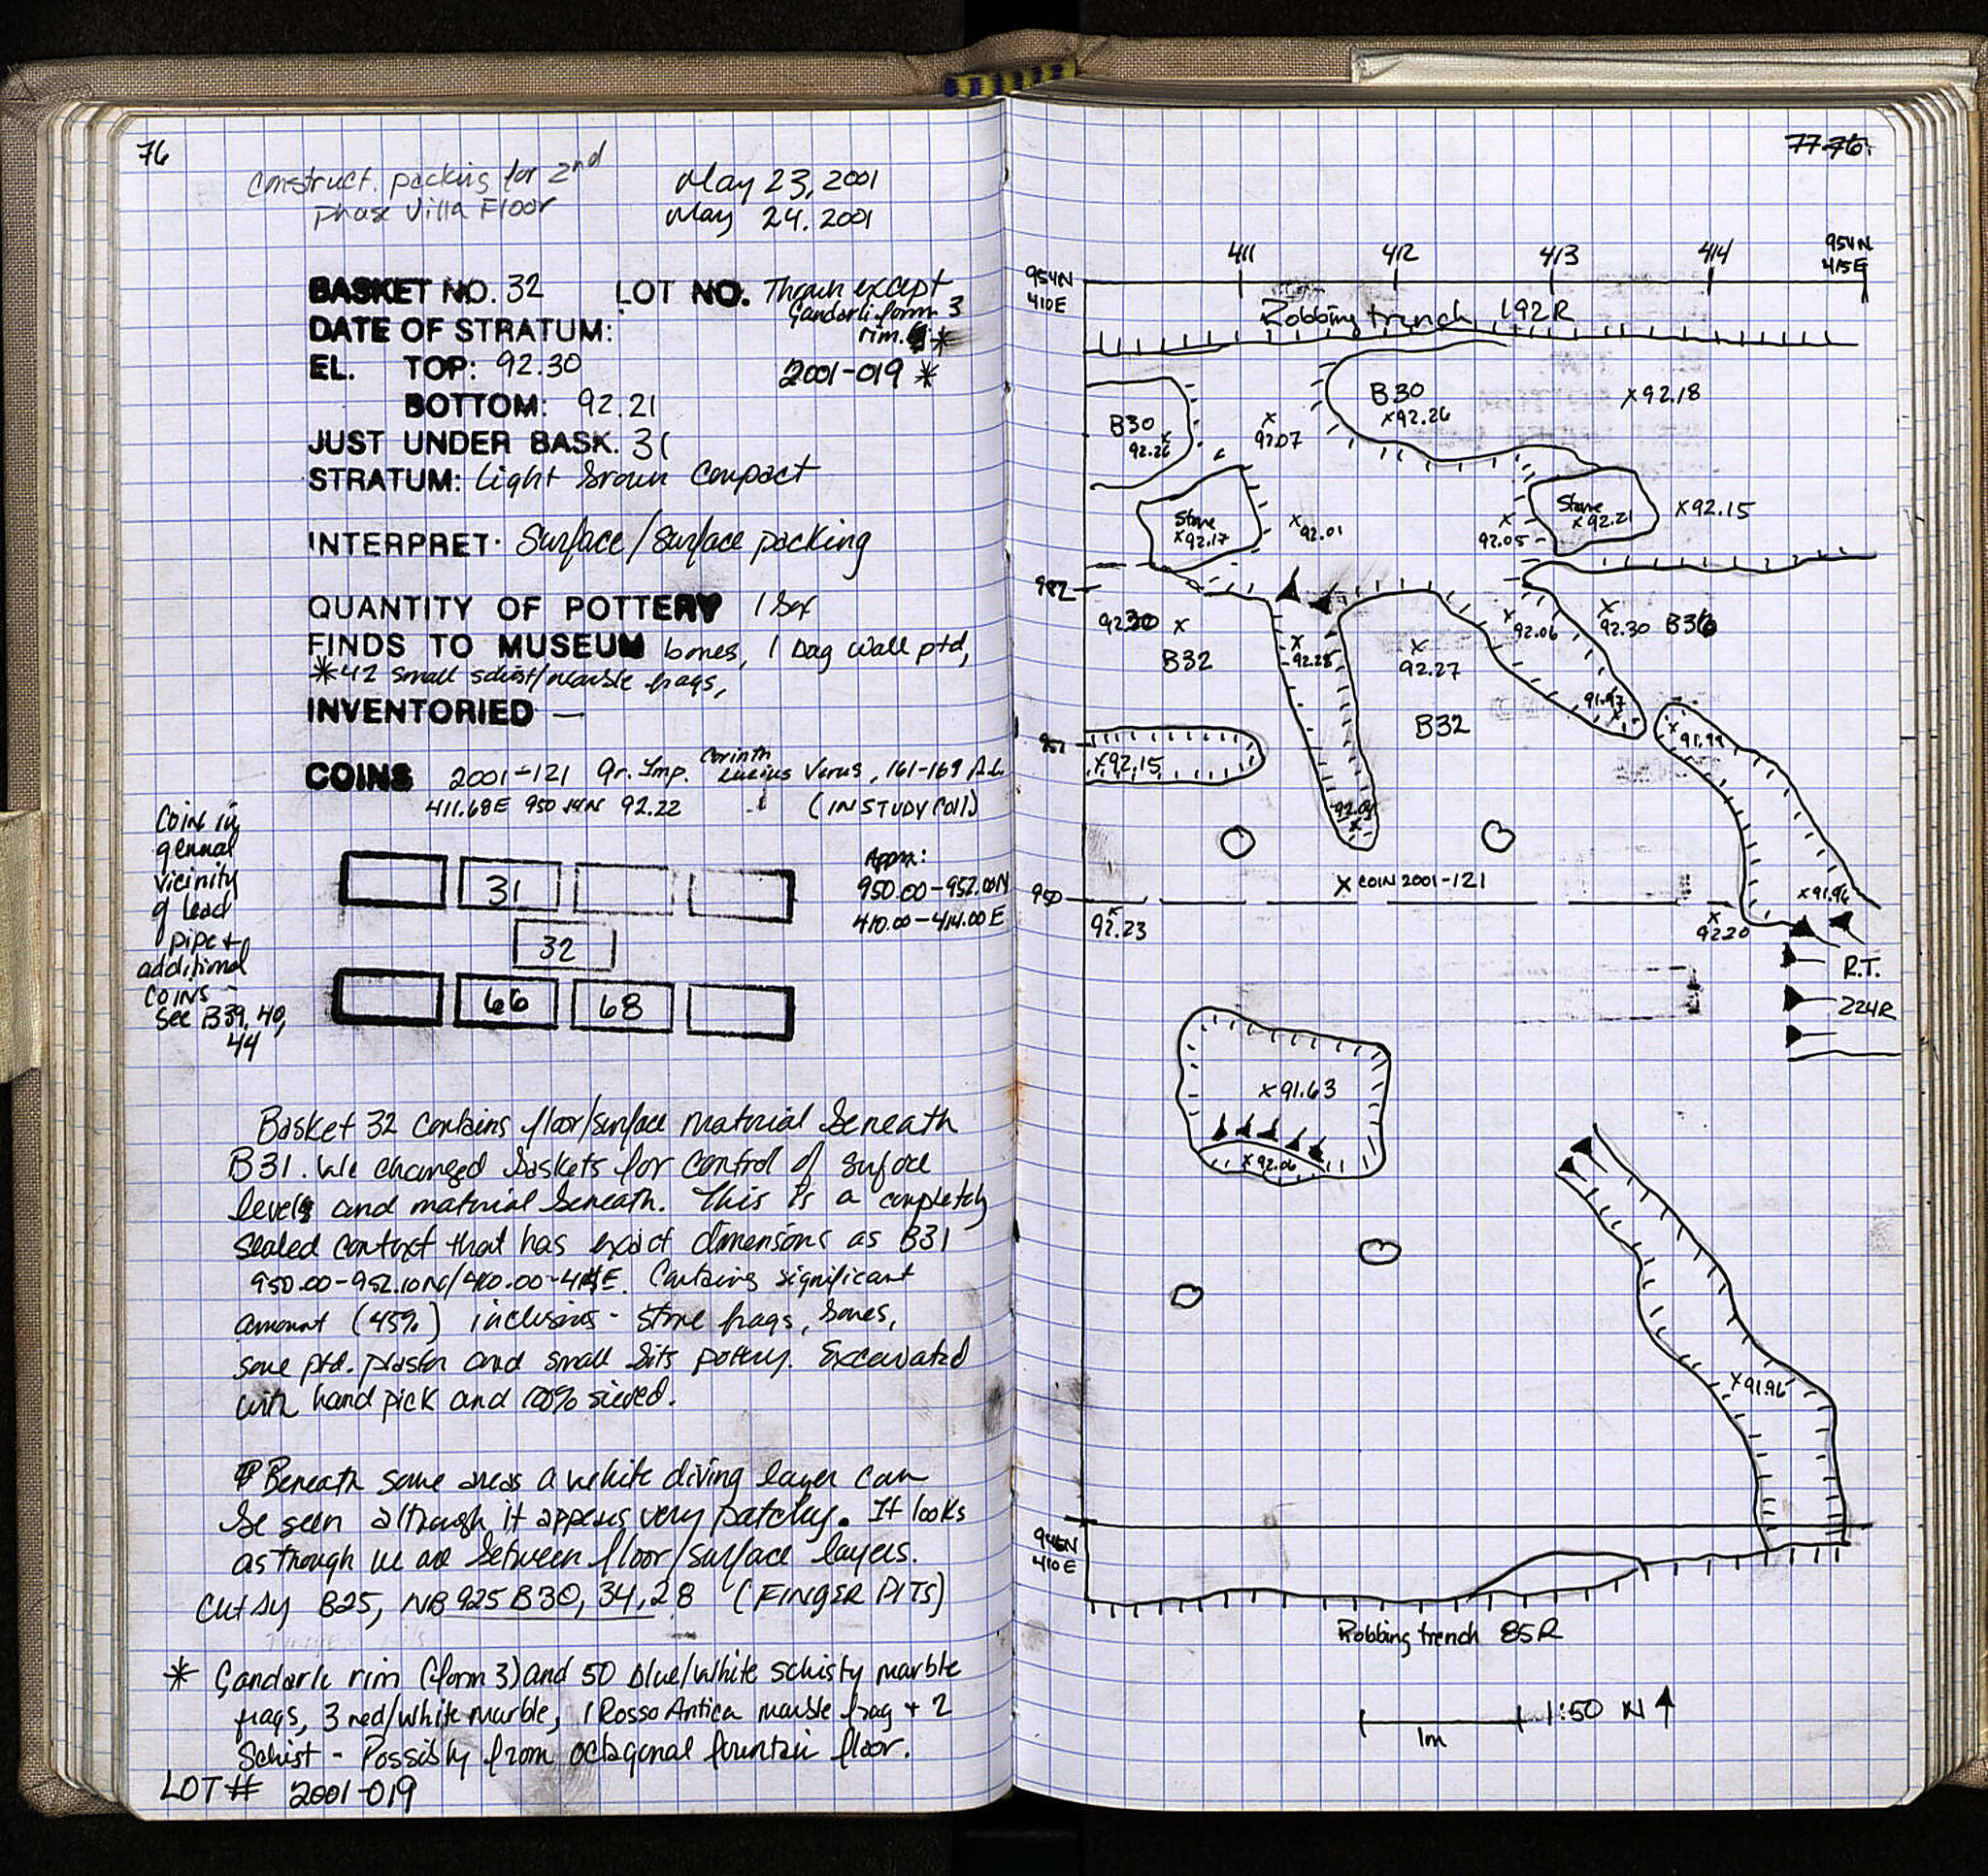 76
Construct. packing for 2nd
phase Villa Floor
May 23, 2001
May 24. 2001
BASKET NO. 32 LOT NO. Thrown except
Çandarli form 3
rim. *
DATE OF STRATUM:
EL. TOP: 92.30
2001-019 *
BOTTOM: 92.21
JUST UNDER BASK. 31
STRATUM: Light brown compact
INTERPRET. Surface/Surface packing
QUANTITY OF POTTERY 1 box
FINDS TO MUSEUM bones, 1 bag wall ptd,
*42 small schist/marble frags,
INVENTORIED —
COINS 2001-121 Gr. Imp. Corinth Lucius Verus, 161-169 A.D.
411.68E 950.14N 92.22 (IN STUDY COLL)
Coin in
general
vicinity
of lead
pipe +
additional
coins -
see B39, 40,
44
31
32
66 68
Appr:
950.00-952.00N
410.00-414.00 E
Basket 32 contains floor/surface material beneath
B31. We changed baskets for control of surface
levels and material beneath. This is a completely
sealed context that has exact dimensions as B31
950.00-952.10N/410.00-414E. Contains significant
amount (45%) inclusions - stone frags, bones,
some ptd. plaster and small bits pottery. Excavated
with hand pick and 100% sieved.
Beneath some areas a white diving layer can
be seen although it appears very patchy. It looks
as though we are between floor/surface layers.
Cut by B25, NB 925 B30, 34, 28 (FINGER PITS)
* Çandarli rim (form 3) and 50 blue/white schisty marble
frags, 3 red/white marble, 1 Rosso Antica marble frag + 2
Schist - Possibly from octagonal fountain floor.
LOT # 2001-019
77 76.
411 412 413 414
954N
415E
954N
410E
Robbing trench 192R
B30
x92.26
x92.18
B30
92.26
x
x
92.07
Stone
x92.17
x
92.01
x
92.05
Stone
x92.21
x92.15
952
92.30 x
B32
x
92.28
x
92.27
B32
x
92.06
x
92.30 B36
91.97
x
x
91.99
951
x92.15
92.04
x
x COIN 2001-121
950
x
92.23
x
92.20
x91.96
R.T.
224R
x91.63
x92.06
x91.95
946N
410E
Robbing trench 85R
1m
1:50 N